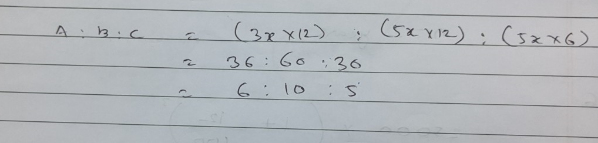 A : B : C = (3x × 12) : (5x × 12) : (5x × 6)
= 36 : 60 : 30
= 6 : 10 : 5